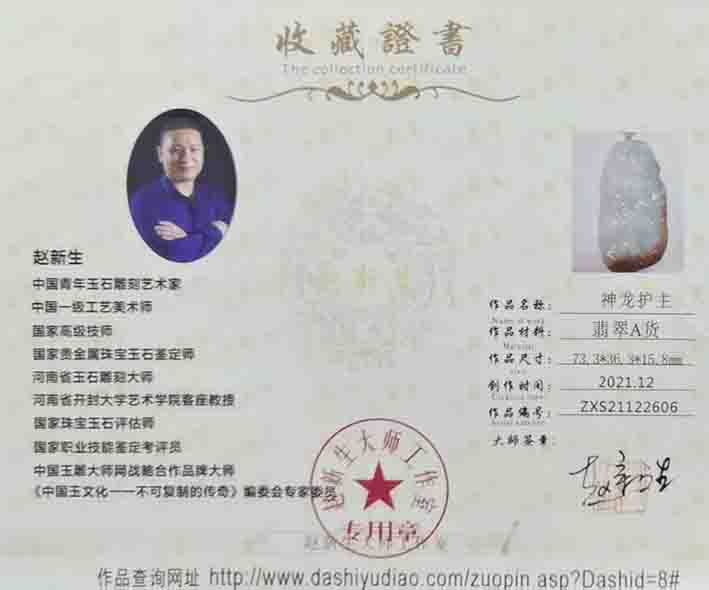 收藏證書
The collection certificate
赵新生
中国青年玉石雕刻艺术家
中国一级工艺美术师
国家高级技师
国家贵金属珠宝玉石鉴定师
河南省玉石雕刻大师
河南省开封大学艺术学院客座教授
国家珠宝玉石评估师
国家职业技能鉴定考评员
中国玉雕大师网战略合作品牌大师
《中国玉文化——不可复制的传奇》编委会专家委员
作品名称：神龙护主
Name of work
作品材料：翡翠A货
Material
作品尺寸：73.3*36.3*15.8mm
size
创作时间：2021.12
Creation time
作品编号：ZXS21122606
大师签章：
赵新生
赵新生大师工作
专用章
作品查询网址 http://www.dashiyudiao.com/zuopin.asp?Dashid=8#